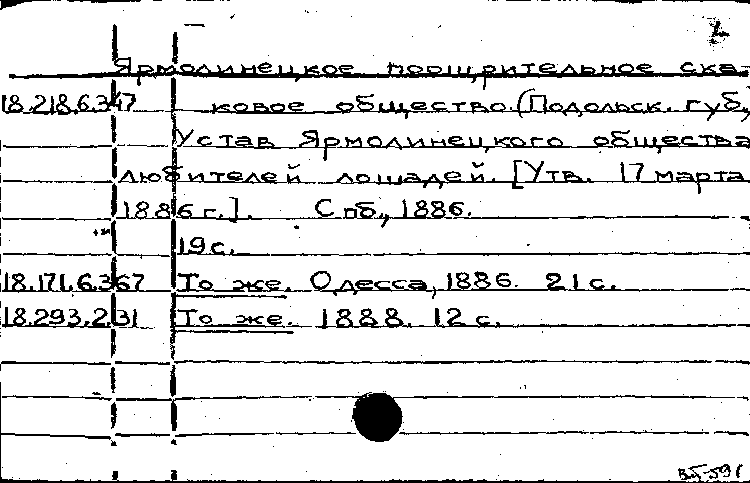 Ярмолинецкое поощрительное ска-
18.218.6.347 ковое общество. (Подольск. губ.)
Устав Ярмолинецкого общества
любителей лошадей. [Утв. 17 марта
1886 г.]. Спб., 1886.
19 с.
18.171.6.367 То же. Одесса, 1886. 21 с.
18.293.2.31 То же. 1888. 12 с.